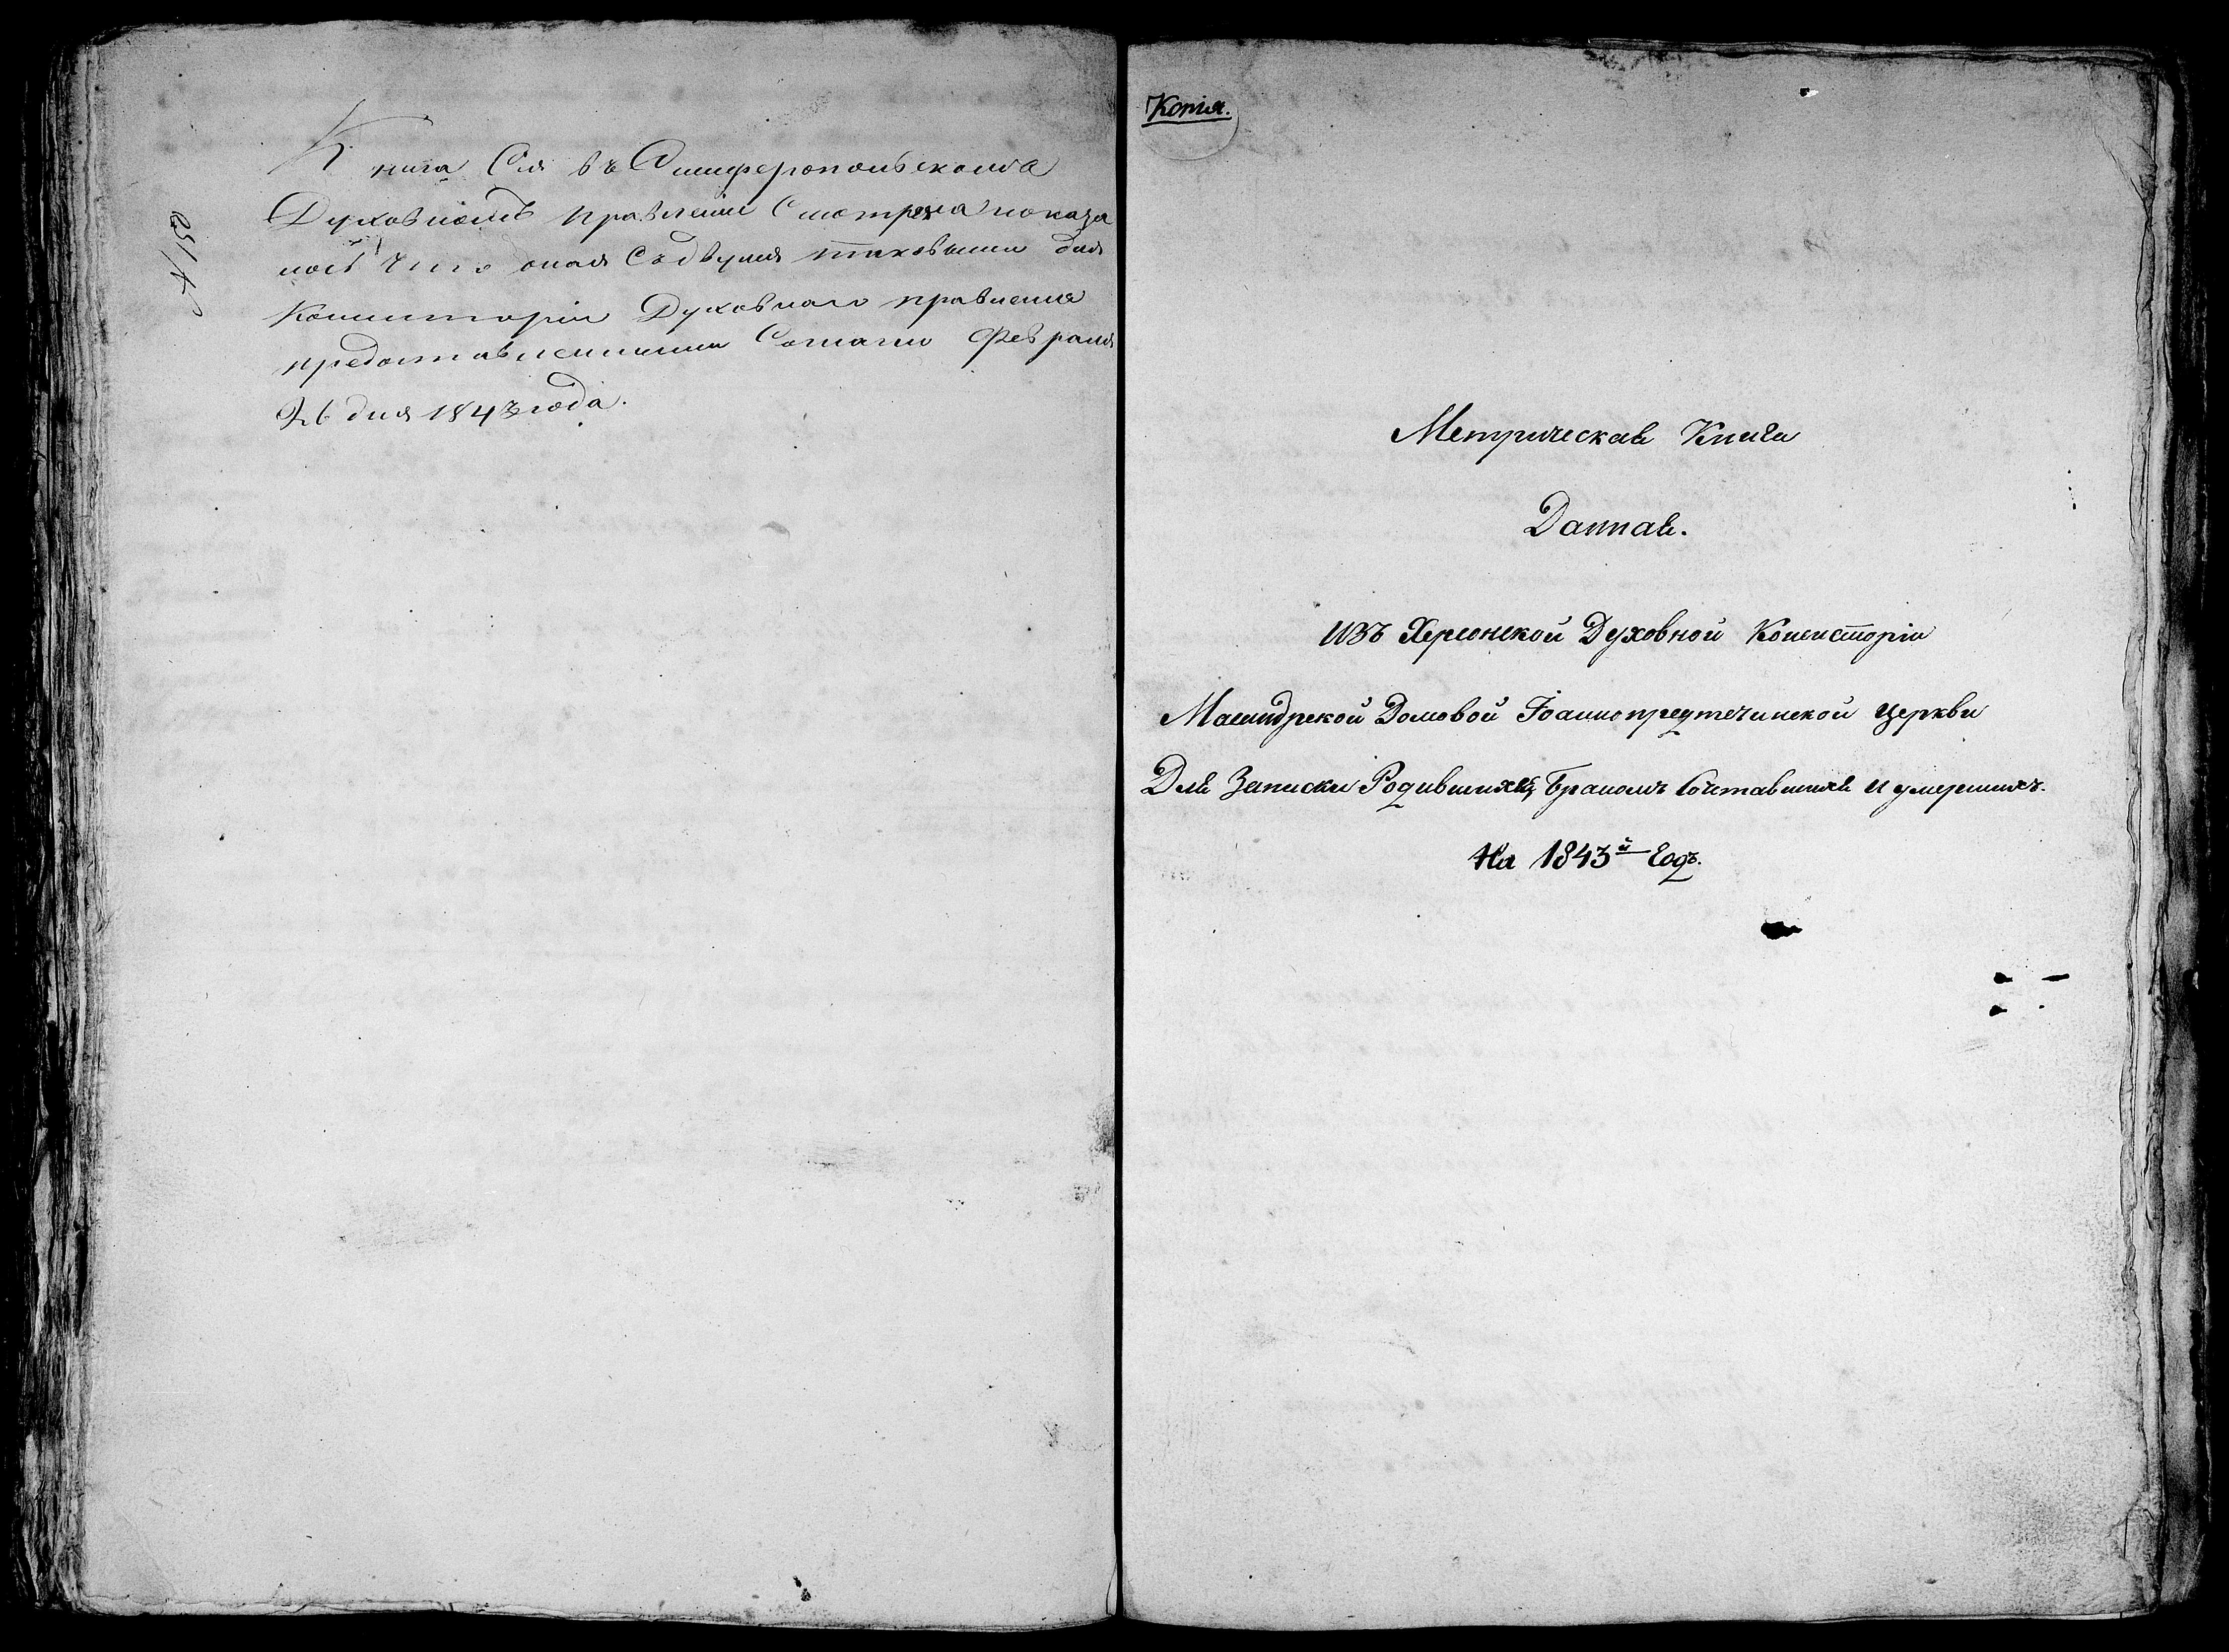 Книга Сія въ Симферопольскомъ
Духовномъ правленіи Смотрена и оказа
лось что оная Съ двумя таковыми для
Консисторіи Духовнаго правленія
предоставленными Согласно Февраля
26 дня 1843 года.
Копія.
Метрическая Книга
Данная.
изъ Херсонской Духовной Консисторіи
Масандрской Домовой Іоаннопредтечинской церкви
Для Записки Родившихся, Бракомъ Сочетавшихся и умершихъ.
На 1843й Годъ.